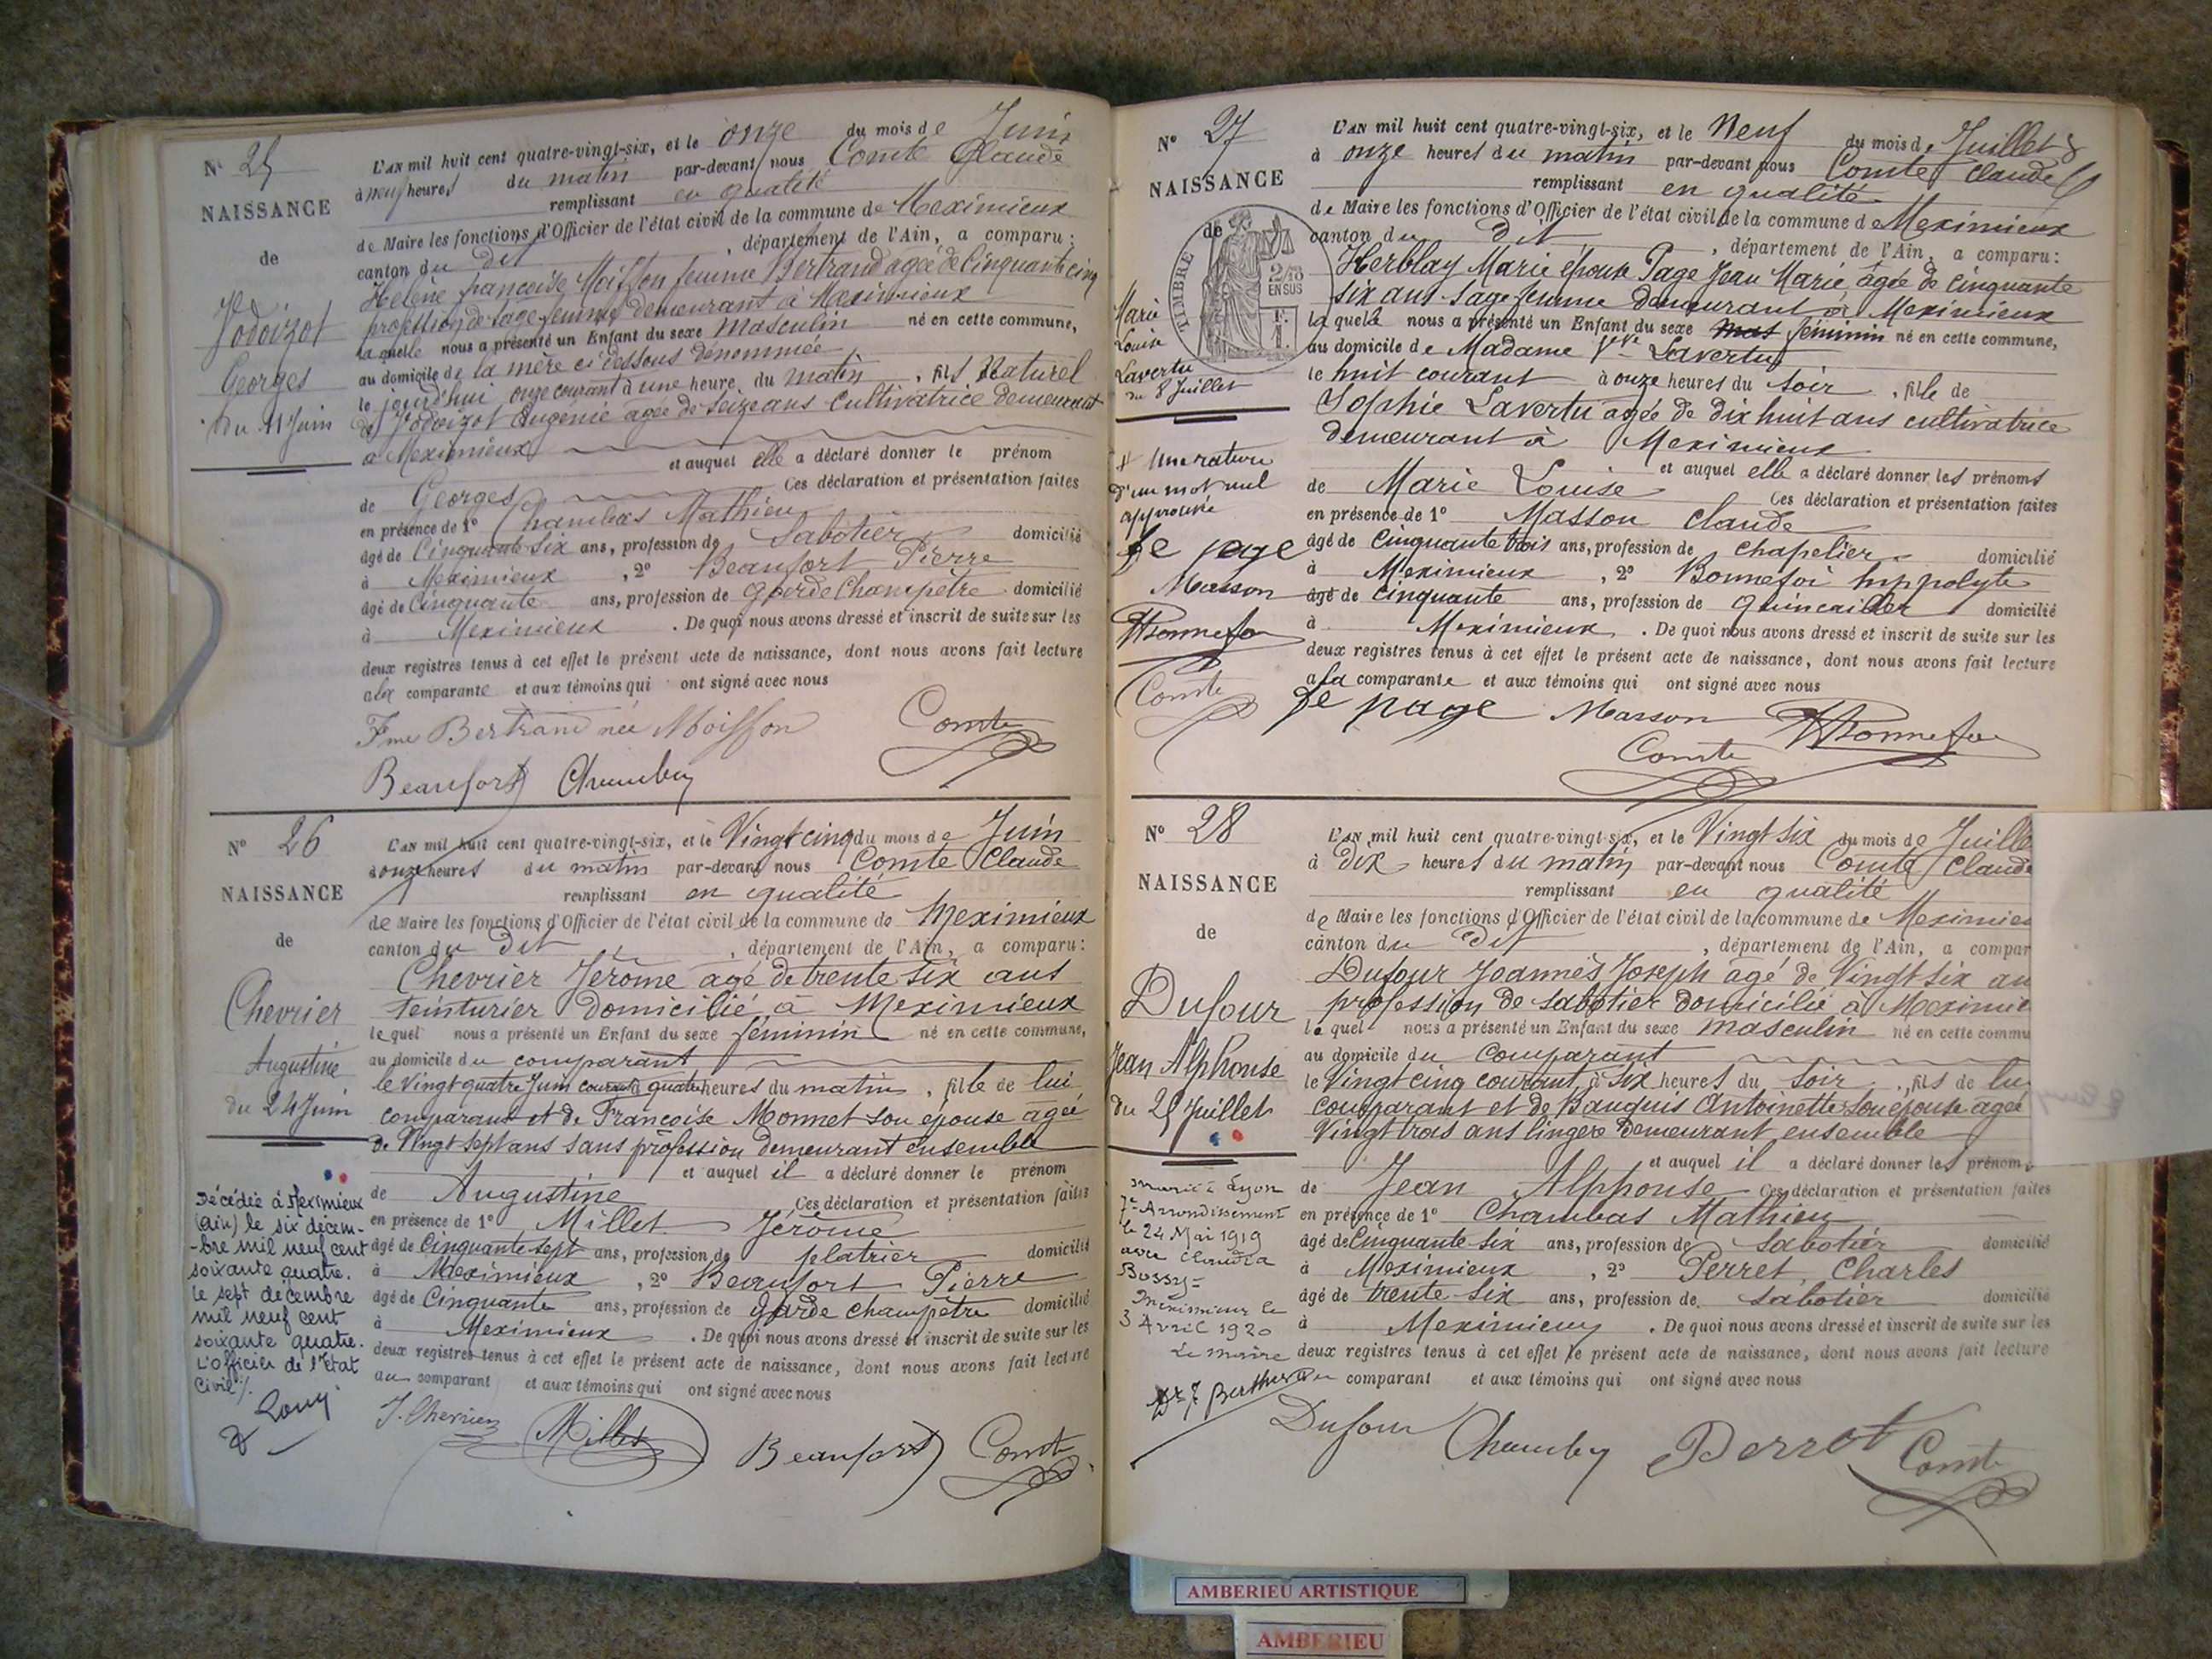 N° 25
NAISSANCE
de
Jodoizot
Georges
du 11 Juin
L'AN mil huit cent quatre-vingt-six, et le onze du mois de Juin
à neuf heures du matin par-devant nous Comte Claude
remplissant en qualité
de Maire les fonctions d'Officier de l'état civil de la commune de Meximieux
canton du dit, département de l'Ain, a comparu :
Helène françoise Moisson femme Bertrand agée de Cinquante cinq
profession de sage femme demeurant à Meximieux
laquelle nous a présenté un Enfant du sexe masculin né en cette commune,
au domicile de la mère ci dessous dénommée
le jourd'hui onze courant à une heure du matin, fils Naturel
de Jodoizot Eugenie agée de Seize ans Cultivatrice demeurant
à Meximieux
et auquel elle a déclaré donner le prénom
de Georges Ces déclaration et présentation faites
en présence de 1° Chambas Mathieu
âgé de Cinquante six ans, profession de Sabotier domicilié
à Meximieux, 2° Beaufort Pierre
âgé de Cinquante ans, profession de Garde Champêtre domicilié
à Meximieux. De quoi nous avons dressé et inscrit de suite sur les
deux registres tenus à cet effet le présent acte de naissance, dont nous avons fait lecture
a la comparante et aux témoins qui ont signé avec nous
Fme Bertrand née Moisson Comte
Beaufort Chambas
N° 26
NAISSANCE
de
Chevrier
Augustine
du 24 Juin
Décédée à Meximieux
(ain) le six décem-
-bre mil neuf cent
soixante quatre.
Le sept décembre
mil neuf cent
soixante quatre.
L'officier de l'Etat
Civil /.
L'AN mil huit cent quatre-vingt-six, et le Vingt cinq du mois de Juin
à onze heures du matin par-devant nous Comte Claude
remplissant en qualité
de Maire les fonctions d'Officier de l'état civil de la commune de Meximieux
canton du dit, département de l'Ain, a comparu :
Chevrier Jérôme agé de trente six ans
teinturier domicilié à Meximieux
lequel nous a présenté un Enfant du sexe féminin né en cette commune,
au domicile du comparant
le Vingt quatre Juin courant à quatre heures du matin, fille de lui
comparant et de Françoise Monnet son epouse agée
de Vingt sept ans sans profession demeurant ensemble
et auquel il a déclaré donner le prénom
de Augustine Ces déclaration et présentation faites
en présence de 1° Millet Jérôme
âgé de Cinquante sept ans, profession de platrier domicilié
à Meximieux, 2° Beaufort Pierre
âgé de Cinquante ans, profession de Garde champêtre domicilié
à Meximieux. De quoi nous avons dressé et inscrit de suite sur les
deux registres tenus à cet effet le présent acte de naissance, dont nous avons fait lecture
au comparant et aux témoins qui ont signé avec nous
J. Chevrier Millet Beaufort Comte
N° 27
NAISSANCE
de
TIMBRE
2/10
EN SUS
Marie
Louise
Lavertu
du 8 Juillet
# Une rature
d'un mot nul
approuvée
fe page
Masson
HBonnefoi
Comte
L'AN mil huit cent quatre-vingt-six, et le Neuf du mois de Juillet
à onze heures du matin par-devant nous Comte Claude
remplissant en qualité
de Maire les fonctions d'Officier de l'état civil de la commune de Meximieux
canton du dit, département de l'Ain, a comparu :
Herblay Marie épouse Page Jean Marie agée de cinquante
six ans sage femme demeurant à Meximieux
laquelle nous a présenté un Enfant du sexe mas féminin né en cette commune,
au domicile de Madame Vve Lavertu
le huit courant à onze heures du soir, fille de
Sophie Lavertu agée de dix huit ans cultivatrice
demeurant à Meximieux
et auquel elle a déclaré donner les prénoms
de Marie Louise Ces déclaration et présentation faites
en présence de 1° Masson Claude
âgé de cinquante trois ans, profession de chapelier domicilié
à Meximieux, 2° Bonnefoi hyppolyte
âgé de cinquante ans, profession de quincailler domicilié
à Meximieux. De quoi nous avons dressé et inscrit de suite sur les
deux registres tenus à cet effet le présent acte de naissance, dont nous avons fait lecture
a la comparante et aux témoins qui ont signé avec nous
fe page Masson HBonnefoi
Comte
N° 28
NAISSANCE
de
Dufour
Jean Alphonse
du 25 Juillet
marié à Lyon
7e Arrondissement
le 24 Mai 1919
avec Claudia
Bussy =
Meximieux le
3 Avril 1920
Le maire
L'AN mil huit cent quatre-vingt-six, et le Vingt six du mois de Juille
à Dix heures du matin par-devant nous Comte Claude
remplissant en qualité
de Maire les fonctions d'Officier de l'état civil de la commune de Meximieu
canton du dit, département de l'Ain, a compar
Dufour Joannès Joseph agé de Vingt six an
profession de sabotier domicilié à Meximie
lequel nous a présenté un Enfant du sexe masculin né en cette commu
au domicile du comparant
le Vingt cinq courant à six heures du soir, fils de lu
comparant et de Bauquis Antoinette son epouse agée
Vingt trois ans lingere demeurant ensemble
et auquel il a déclaré donner les prénoms
de Jean Alphonse Ces déclaration et présentation faites
en présence de 1° Chambas Mathieu
âgé de Cinquante six ans, profession de Sabotier domicilié
à Meximieux, 2° Perret Charles
âgé de trente six ans, profession de Sabotier domicilié
à Meximieux. De quoi nous avons dressé et inscrit de suite sur les
deux registres tenus à cet effet le présent acte de naissance, dont nous avons fait lecture
au comparant et aux témoins qui ont signé avec nous
Dufour Chambas Perret Comte
AMBERIEU ARTISTIQUE
AMBERIEU